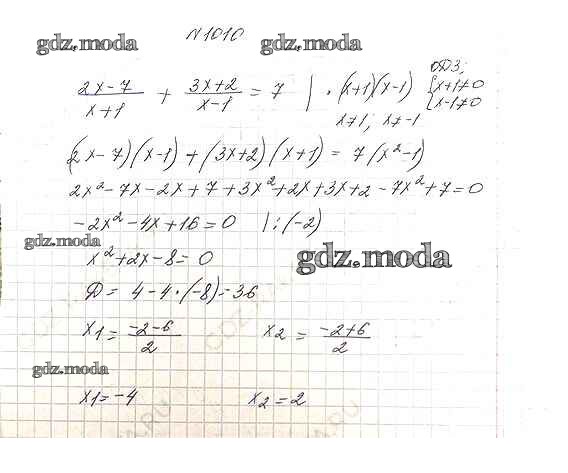 №1010
gdz.moda gdz.moda
ОДЗ:
(2x-7)/(x+1) + (3x+2)/(x-1) = 7 | · (x+1)(x-1) {x+1≠0
x-1≠0
x≠1; x≠-1
(2x-7)(x-1)+(3x+2)(x+1)=7(x²-1)
2x²-7x-2x+7+3x²+2x+3x+2-7x²+7=0
-2x²-4x+16=0 |:(-2)
gdz.moda
x²+2x-8=0
gdz.moda
Д= 4-4·(-8)=36
x₁=(-2-6)/2 x₂=(-2+6)/2
gdz.moda
x₁=-4 x₂=2